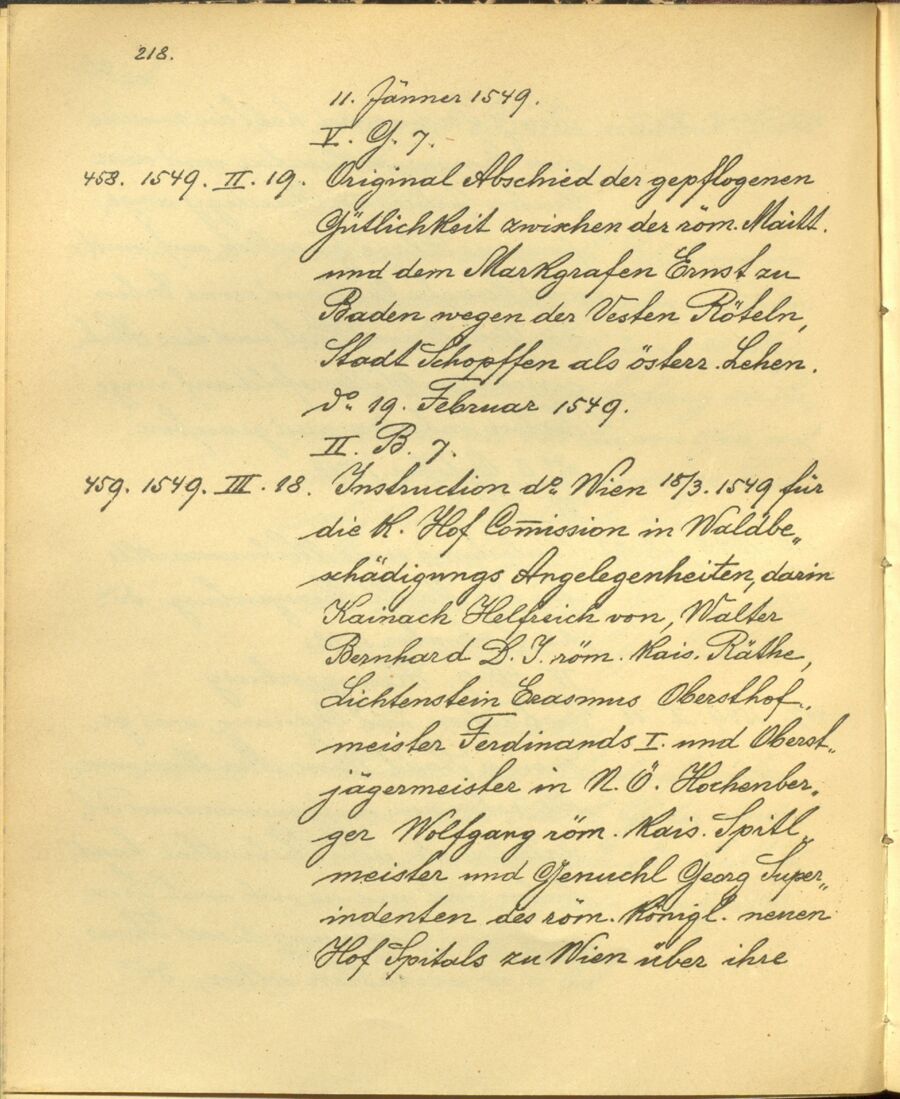 218.
11. Jänner 1549.
V. G. 7.
458. 1549. II. 19. Original Abschied der gepflogenen
Gütlichkeit zwischen der röm. Maitt.
und dem Markgrafen Ernst zu
Baden wegen der Vesten Röteln,
Stadt Schopffen als österr. Lehen.
do. 19. Februar 1549.
II. B. 7.
459. 1549. III. 18. Instruction do. Wien 18/3. 1549 für
die K. Hof Com̅ission in Waldbe„
schädigungs Angelegenheiten, darin
Kainach Helfreich von, Walter
Bernhard D. J. röm. Kais. Räthe,
Lichtenstein Erasmus Obersthof„
meister Ferdinands I. und Oberst„
jägermeister in N. Ö. Hochenber„
ger Wolfgang röm. Kais. Spitl„
meister und Genuchl Georg Super„
indenten des röm. Königl. neuen
Hof Spitals zu Wien über ihre